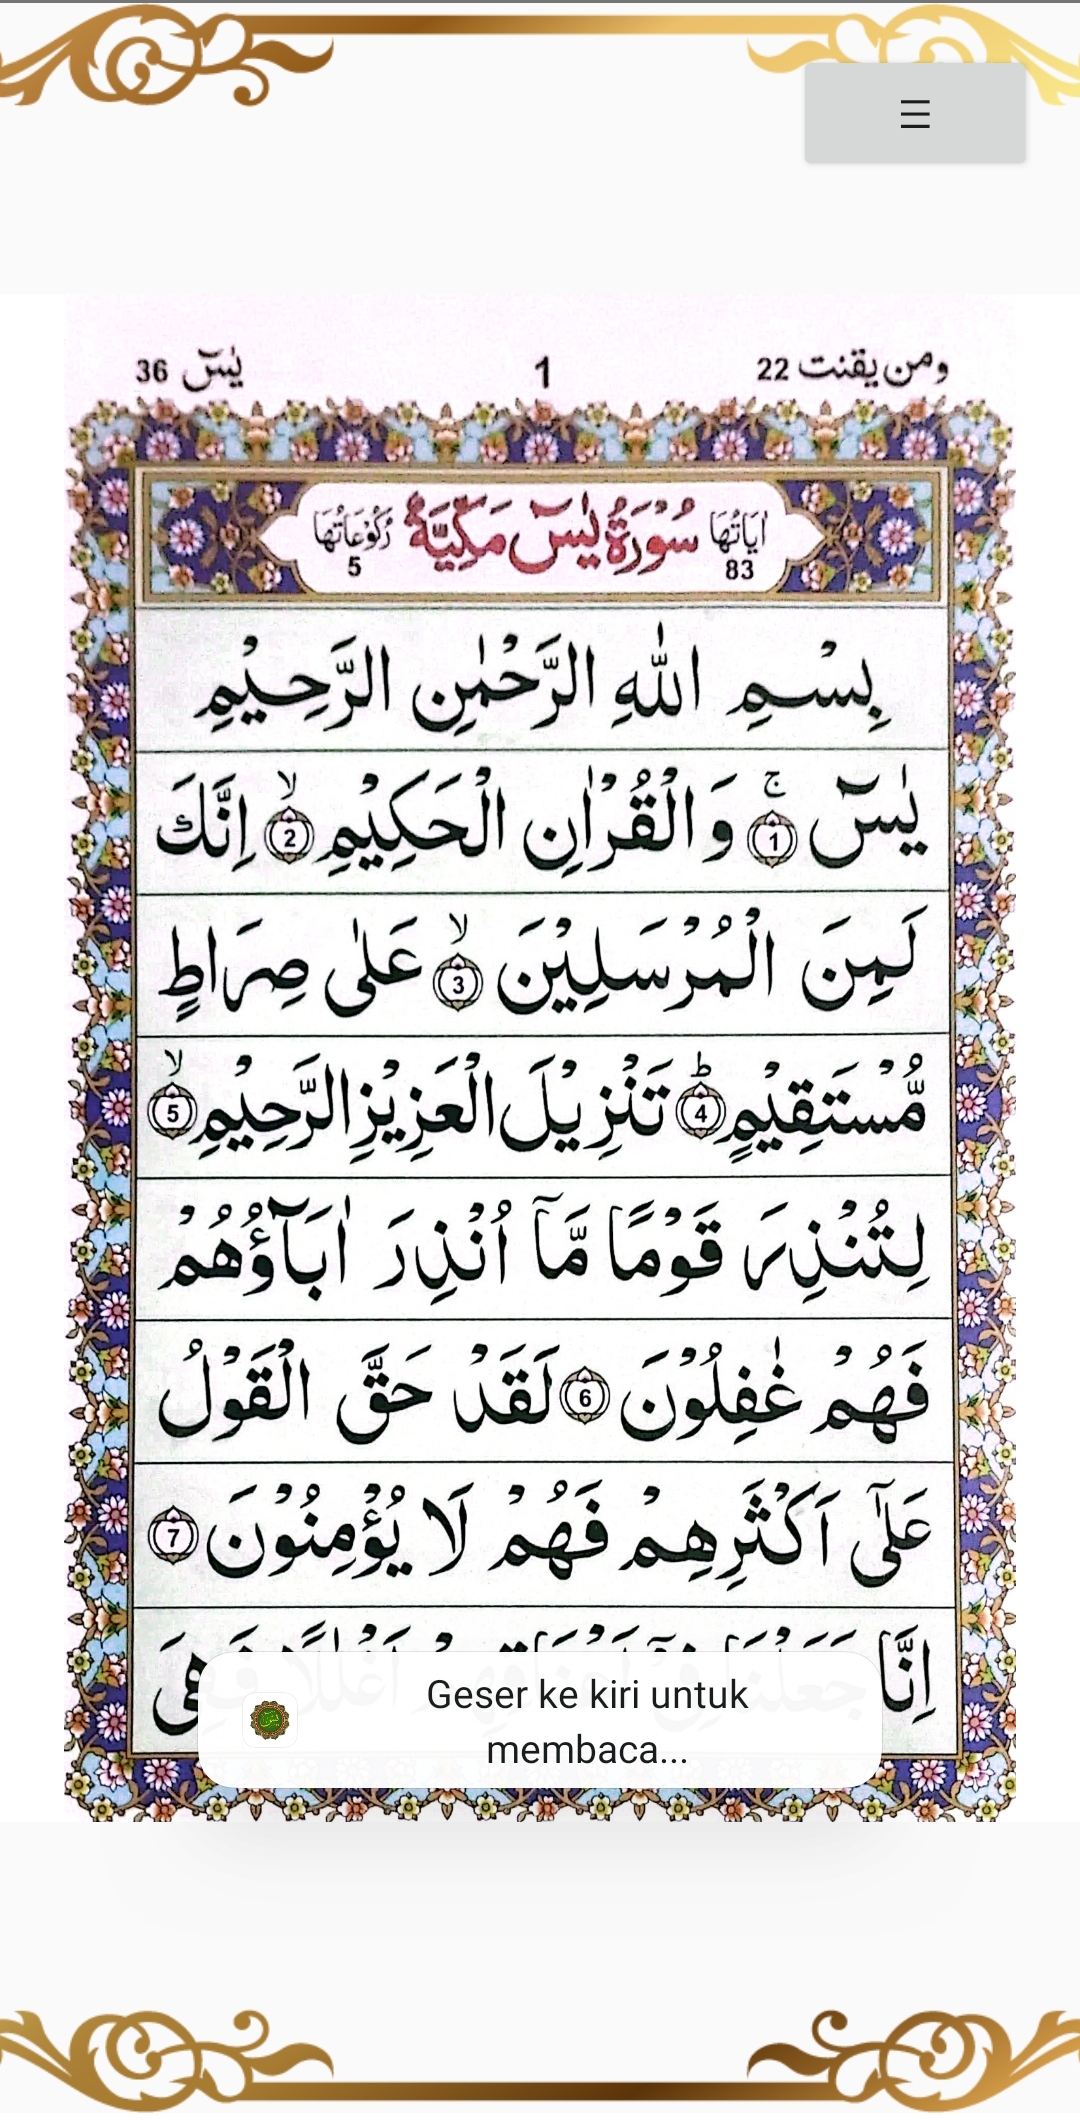 ☰
ومن يقنت 22
1
يٰسٓ 36
اٰيَاتُهَا 83
سُوْرَةُ يٰسٓ مَكِّيَّةٌ
رُكُوْعَاتُهَا 5
بِسْمِ اللّٰهِ الرَّحْمٰنِ الرَّحِيْمِ
يٰسٓ ۚ 1 وَالْقُرْاٰنِ الْحَكِيْمِ ۙ 2 اِنَّكَ
لَمِنَ الْمُرْسَلِيْنَ ۙ 3 عَلٰى صِرَاطٍ
مُّسْتَقِيْمٍ ؕ 4 تَنْزِيْلَ الْعَزِيْزِ الرَّحِيْمِ ۙ 5
لِتُنْذِرَ قَوْمًا مَّآ اُنْذِرَ اٰبَآؤُهُمْ
فَهُمْ غٰفِلُوْنَ 6 لَقَدْ حَقَّ الْقَوْلُ
عَلٰٓى اَكْثَرِهِمْ فَهُمْ لَا يُؤْمِنُوْنَ 7
اِنَّا جَعَلْنَا فِيْٓ اَعْنَاقِهِمْ اَغْلٰلًا فَهِيَ
Geser ke kiri untuk
membaca...